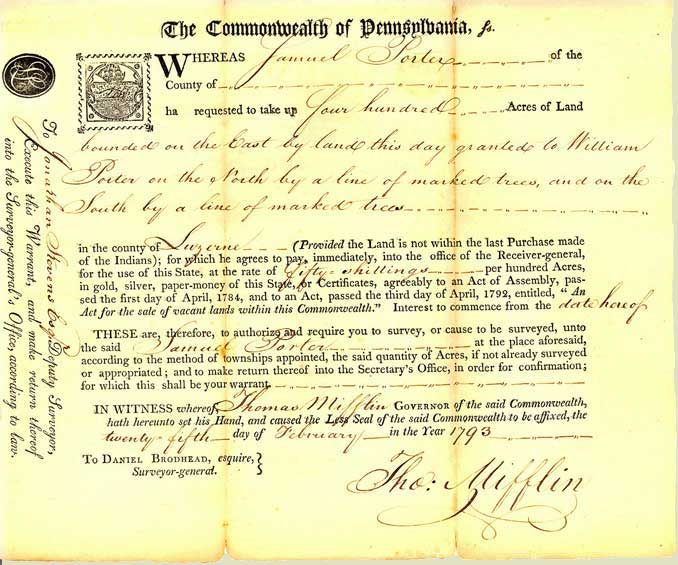 The Commonwealth of Pennsylvania, ss.
WHEREAS Samuel Porter of the
County of
ha requested to take up four hundred Acres of Land
bounded on the East by land this day granted to William
Porter on the North by a line of marked trees, and on the
South by a line of marked trees
in the county of Luzerne (Provided the Land is not within the last Purchase made
of the Indians); for which he agrees to pay, immediately, into the office of the Receiver-general,
for the use of this State, at the rate of fifty shillings per hundred Acres,
in gold, silver, paper-money of this State, or Certificates, agreeably to an Act of Assembly, pas-
sed the first day of April, 1784, and to an Act, passed the third day of April, 1792, entitled, “ An
Act for the sale of vacant lands within this Commonwealth.” Interest to commence from the date hereof
THESE are, therefore, to authorize and require you to survey, or cause to be surveyed, unto
the said Samuel Porter at the place aforesaid,
according to the method of townships appointed, the said quantity of Acres, if not already surveyed
or appropriated ; and to make return thereof into the Secretary's Office, in order for confirmation;
for which this shall be your warrant.
IN WITNESS whereof, Thomas Mifflin GOVERNOR of the said Commonwealth,
hath hereunto set his Hand, and caused the Less Seal of the said Commonwealth to be affixed, the
twenty-fifth day of February in the Year 1793
TO DANIEL BRODHEAD, esquire, }
Surveyor-general.
Tho: Mifflin
To Jonathan Stevens Esqr Deputy Surveyor,
Execute this Warrant, and make return thereof
into the Surveyor-general's Office, according to law.